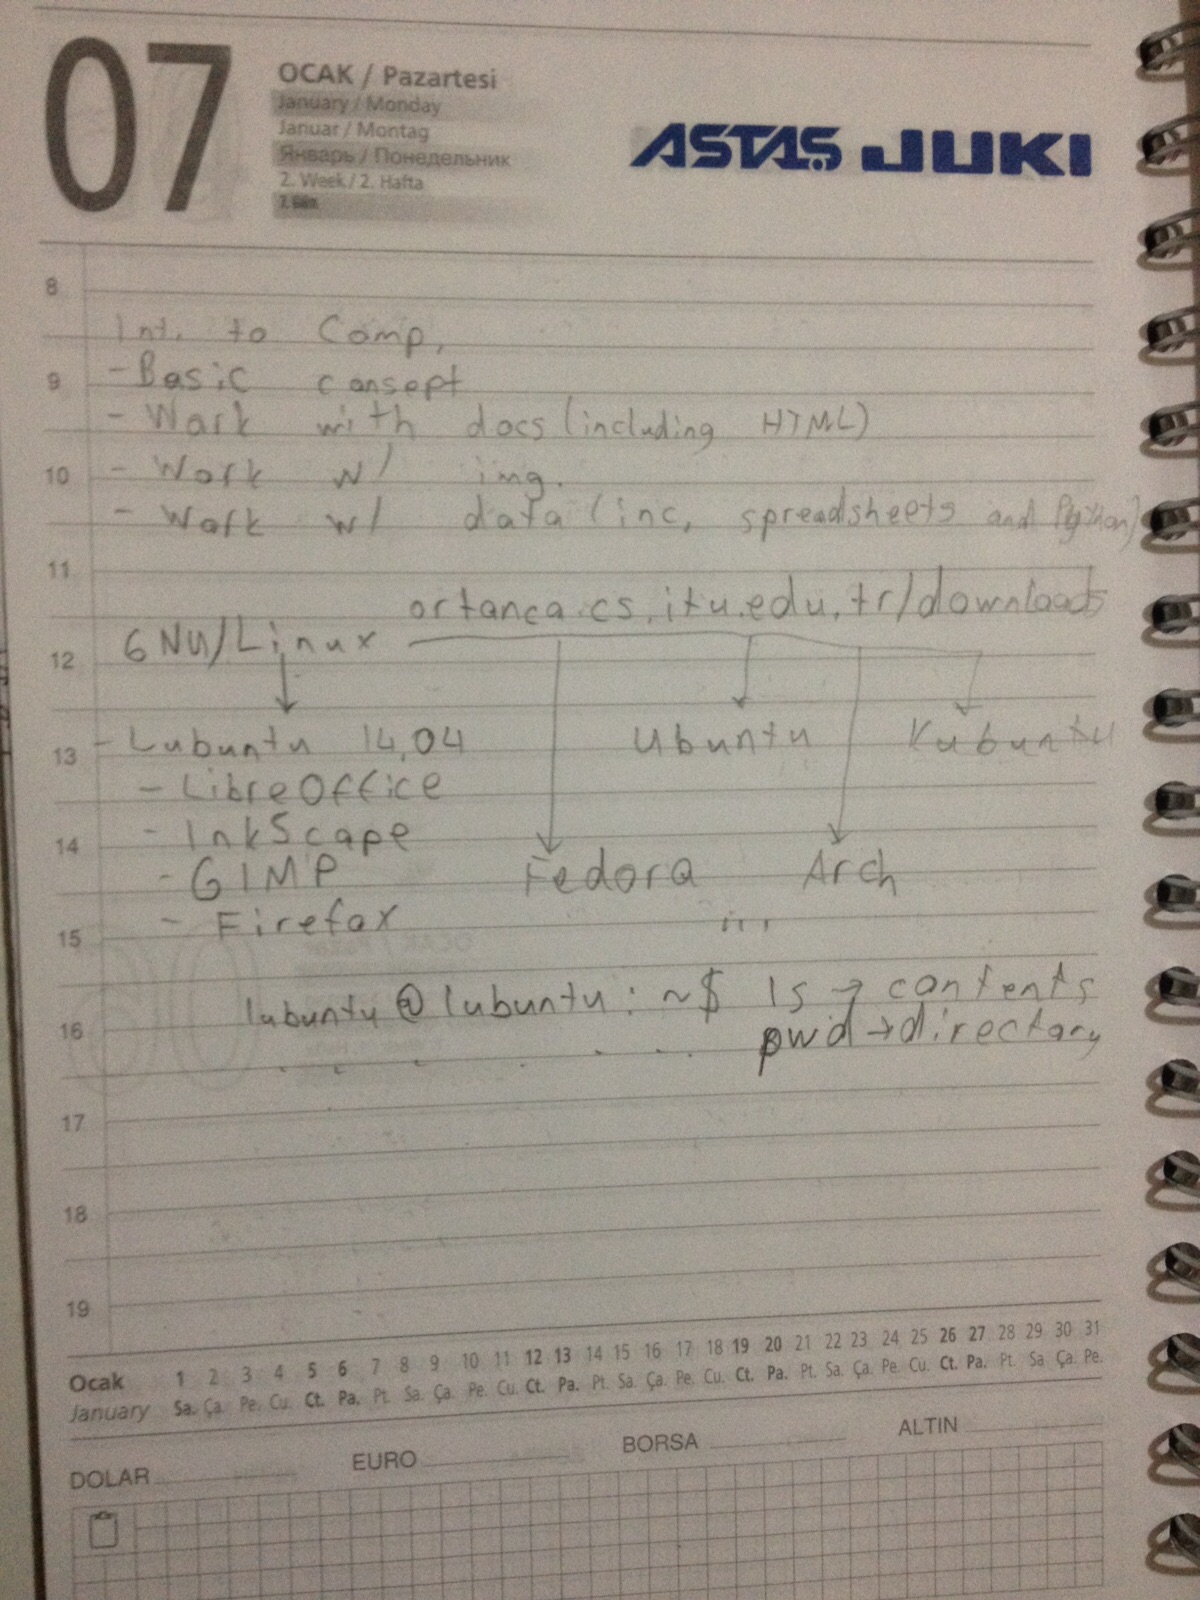 07
OCAK / Pazartesi
January / Monday
Januar / Montag
Январь / Понедельник
2. Week / 2. Hafta
7. Gün
ASTAŞ JUKI
8
Int. to Comp.
9 - Basic consept
- Work with docs (including HTML)
10 - Work w/ img.
- Work w/ data (inc. spreadsheets and Python)
11
ortanca.cs.itu.edu.tr/downloads
GNU/Linux
12
13 - Lubuntu 14.04 Ubuntu Kubuntu
- LibreOffice
14 - InkScape
- GIMP Fedora Arch
- Firefox ...
15
lubuntu@lubuntu: ~$ ls → contents
16 pwd → directory
17
18
19
Ocak 1 2 3 4 5 6 7 8 9 10 11 12 13 14 15 16 17 18 19 20 21 22 23 24 25 26 27 28 29 30 31
January Sa. Ça. Pe. Cu. Ct. Pa. Pt. Sa. Ça. Pe. Cu. Ct. Pa. Pt. Sa. Ça. Pe. Cu. Ct. Pa. Pt. Sa. Ça. Pe. Cu. Ct. Pa. Pt. Sa Ça. Pe.
DOLAR EURO BORSA ALTIN